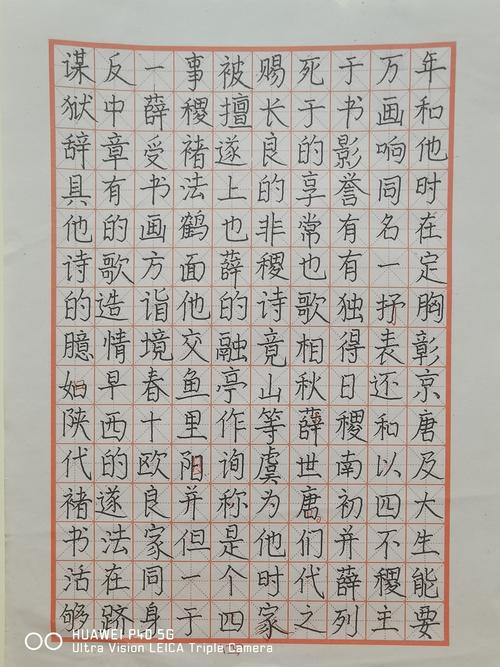 谋反一事被赐死于万年
狱中薛稷擅长于书画和
辞章受褚遂良的影响他
具有书法上的享誉同时
他的画鹤也非常有名在
诗歌方面薛稷也有一定
的造诣他的诗歌独抒胸
臆情境交融竟相得表彰
如早春鱼亭山秋日还京
陕西十里作等薛稷和唐
代的欧阳询虞世南以及
褚遂良并称为唐初四大
书法家但是他们并不生
活在同一个时代薛稷能
够跻身于四家之列主要
HUAWEI P40 5G
Ultra Vision LEICA Triple Camera